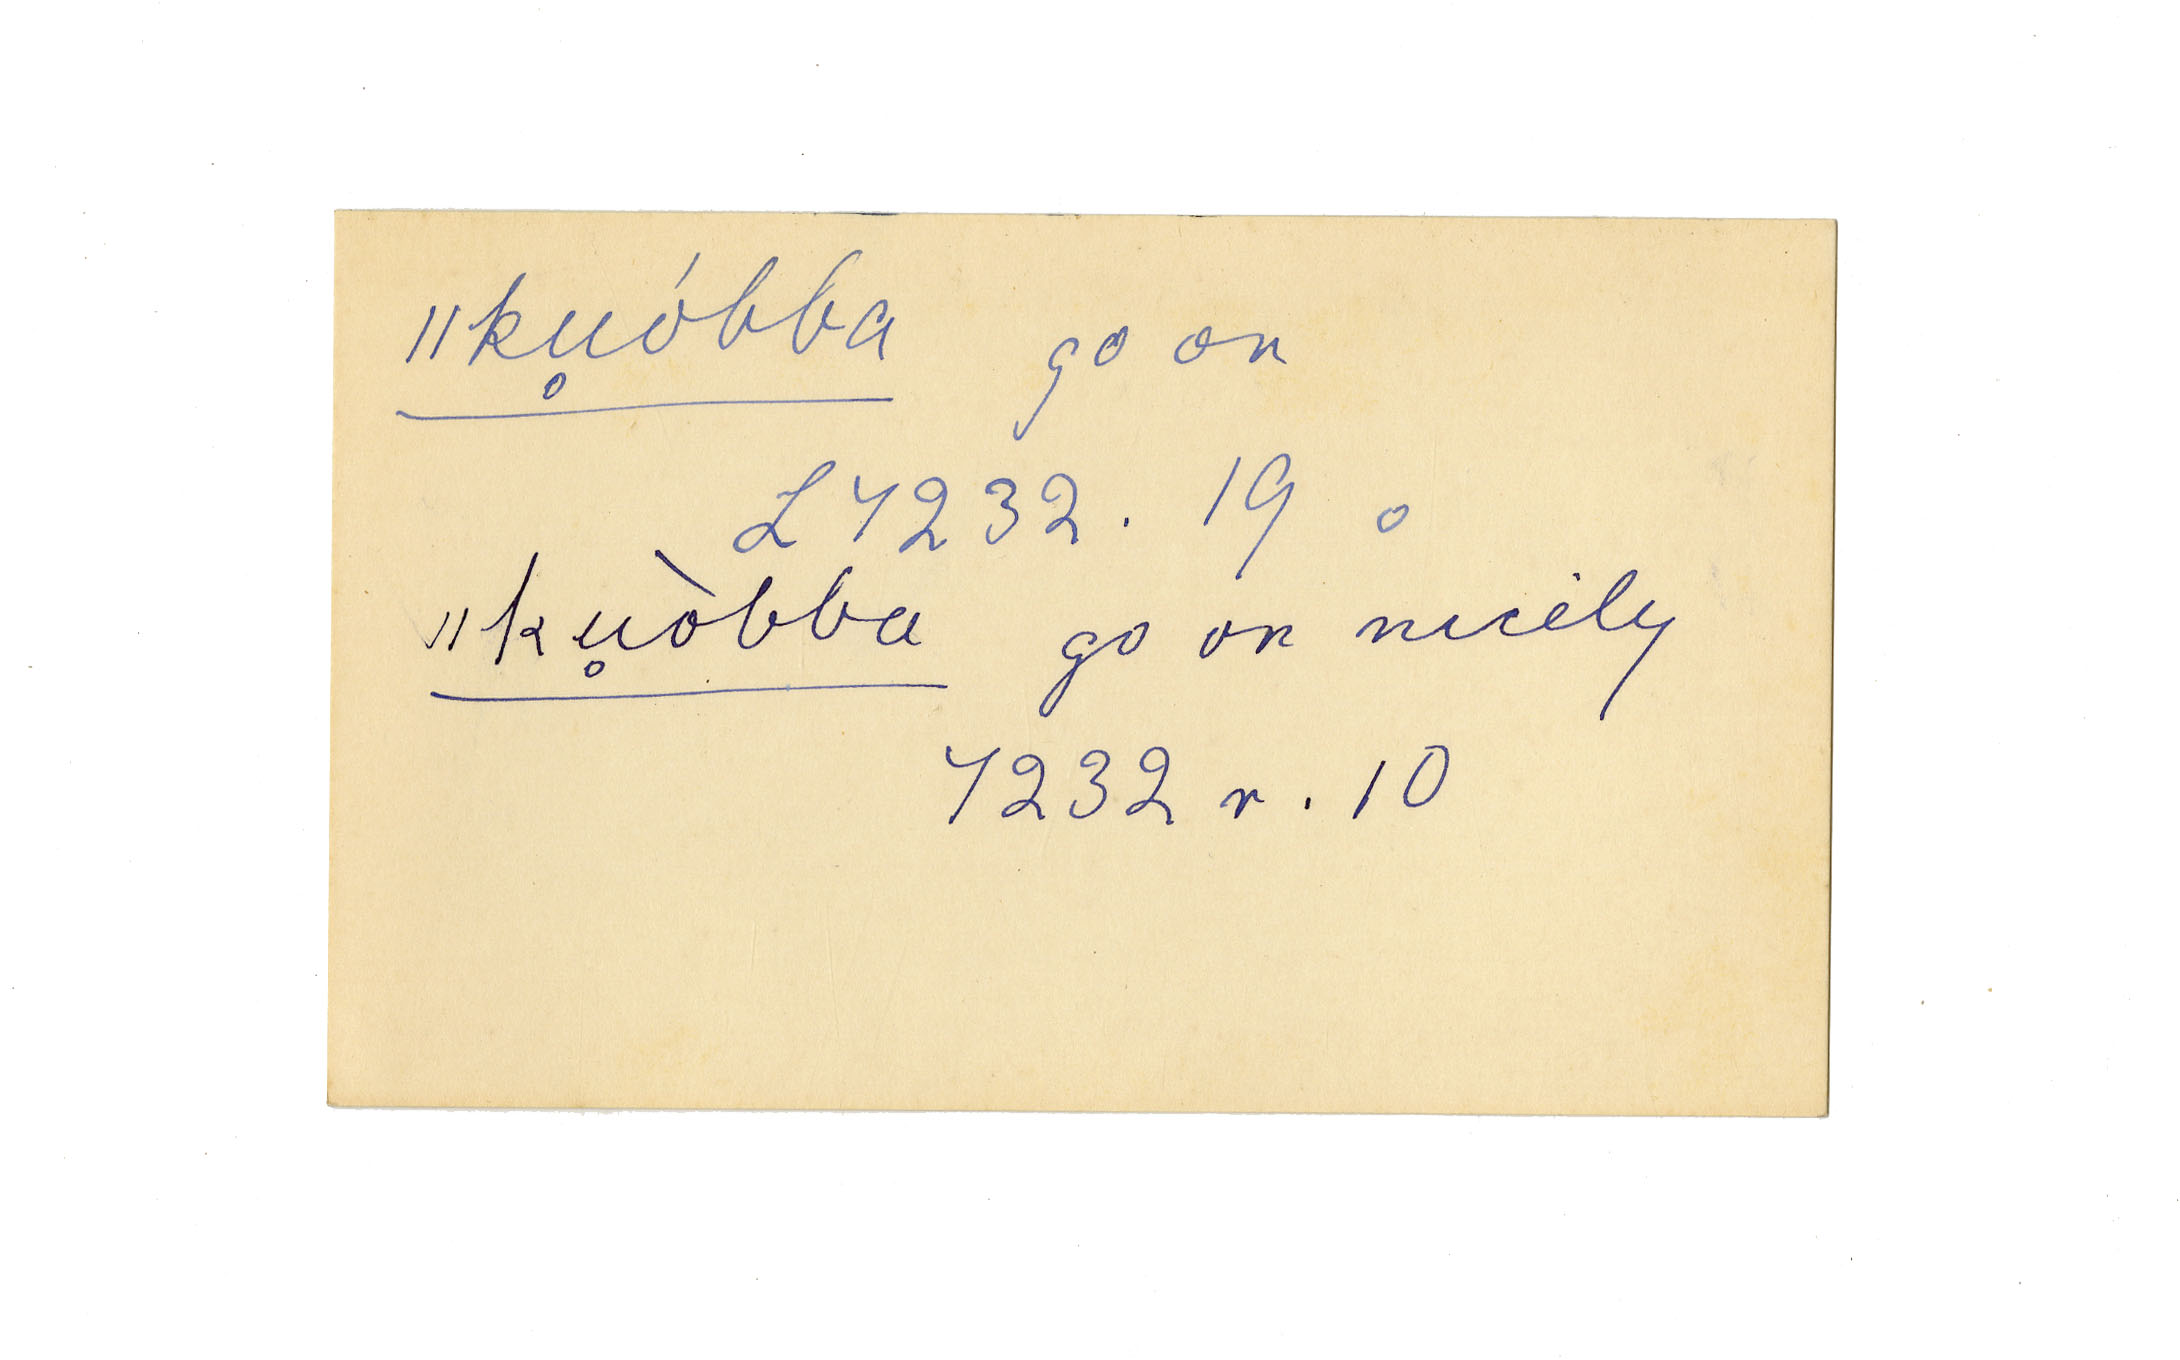 ǁku̥óbba go on
L 7232. 19 o
ǁku̥òbba go on nicely
7232 r. 10